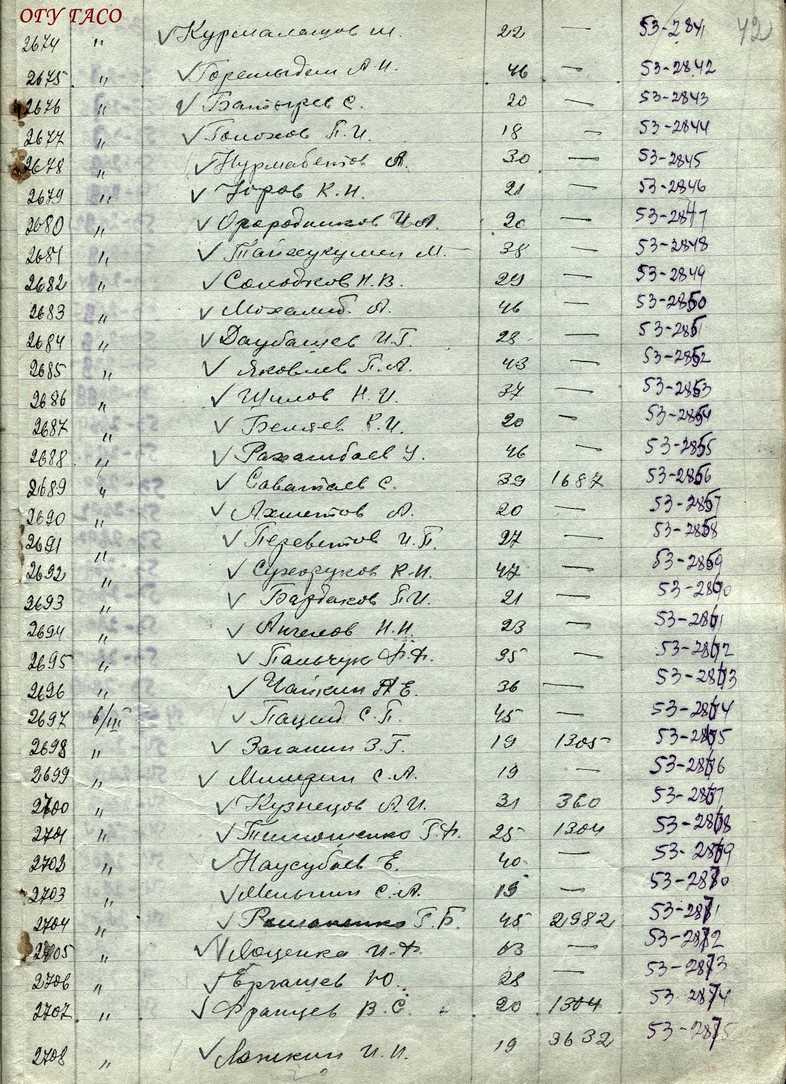 ОГУ ГАСО
42
2674 " Курмалащов Ш. 22 — 53-2841
2675 " Горемыдин А.И. 46 — 53-2842
2676 " Батырев С. 20 — 53-2843
2677 " Голохов П.И. 18 — 53-2844
2678 " Нурмабетов А. 30 — 53-2845
2679 " К.И. 21 — 53-2846
2680 " Огородников И.А. 20 — 53-2847
2681 " М. — 38 — 53-2848
2682 " Солодков Н.В. 29 — 53-2849
2683 " А. 46 — 53-2850
2684 " Даубашев И.Г. 28 — 53-2851
2685 " Яковлев П.А. 43 — 53-2852
2686 " Шилов Н.И. 37 — 53-2853
2687 " Беляев К.И. 20 — 53-2854
2688 " Рахимбаев У. 46 — 53-2855
2689 " Саватаев С. 39 1687 53-2856
2690 " Ахметов А. 20 — 53-2857
2691 " Переветов И.П. 27 — 53-2858
2692 " Сухоруков К.И. 47 — 53-2859
2693 " Барбаков П.И. 21 — 53-2860
2694 " Ангелов Н.И. 23 — 53-2861
2695 " Пальчук Ф.Ф. 35 — 53-2862
2696 " Чайкин А.Е. 36 — 53-2863
2697 6/III Пацид С.П. 45 — 53-2864
2698 " Заганин З.Г. 19 1305 53-2865
2699 " Мишурин С.А. 19 — 53-2866
2700 " Кузнецов А.И. 31 360 53-2867
2701 " Тимошенко Г.Ф. 25 1304 53-2868
2702 " Наусубаев Е. 40 — 53-2869
2703 " Мельгин С.А. 19 — 53-2870
2704 " Романенко Г.Б. 45 2982 53-2871
2705 " Лоценко И.Ф. 53-2872
2706 " Ергашев Ю. 28 — 53-2873
2707 " Францев В.С. 20 1304 53-2874
2708 " Ложкин И.И. 19 3632 53-2875